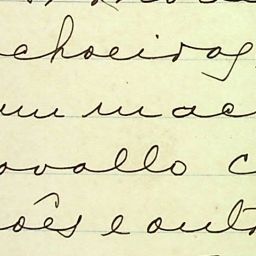 choeiros
um mac
avallo c
ôes e out